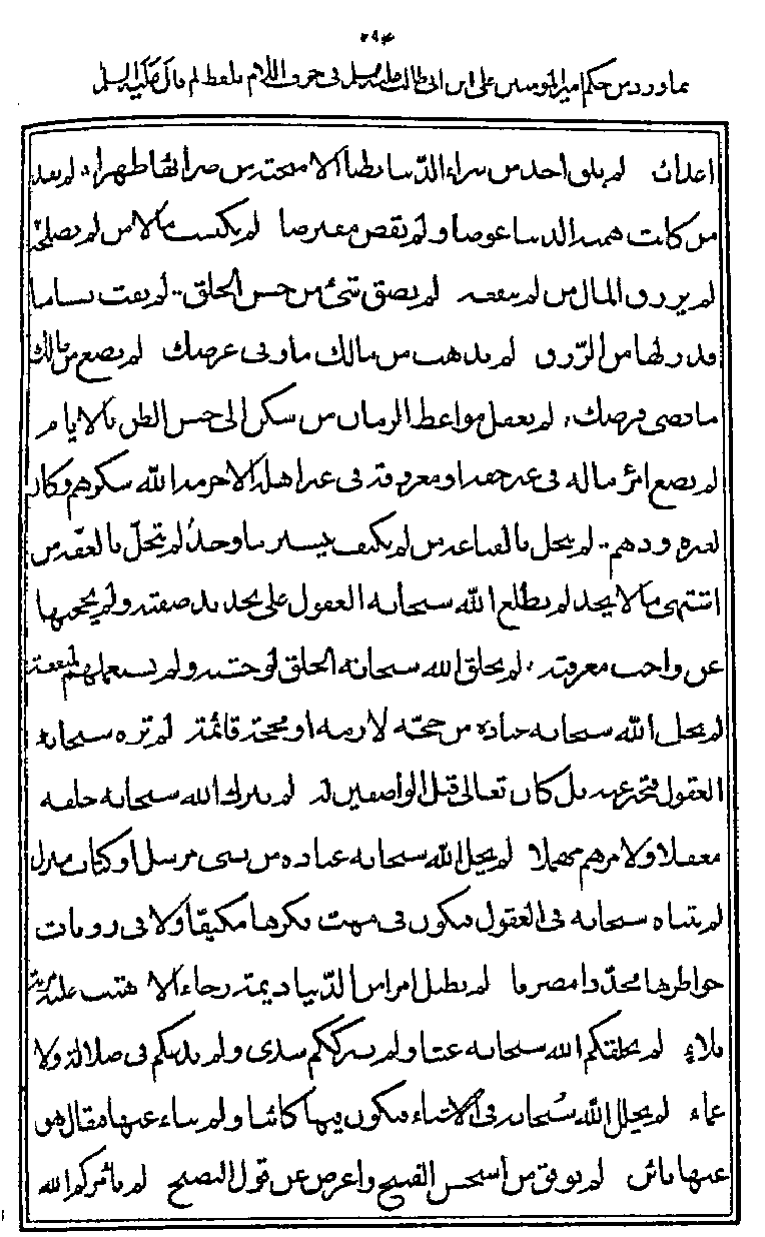 ٢٩٤
مما ورد من حكم أمير المؤمنين علي ابن أبي طالب عليه السلام في حرف اللام بلفظ لم قال عليه السلام
لم يلق أحد من سراء الدنيا بطنا إلا منحته من ضرائها ظهرا، لم يفد
من كانت همته الدنيا عوضا ولم يقض مفترضا لم يكتسب مالا من لم يصلحه
لم يرزق المال من لم ينفقه لم يضق شئ من حسن الخلق لم يفت نفسا ما
قدر لها من الرزق لم يذهب من مالك ما وقى عرضك لم يضع من مالك
ما قضى فرضك، لم يعقل مواعظ الزمان من سكن إلى حسن الظن بالأيام
لم يضع امرؤ ماله في غير حقه أو معروفه في غير أهله إلا حرمه الله شكرهم وكان
لغيره ودهم لم يتحل بالقناعة من لم يكتف بيسير ما وجد لم يتحل بالعفة من
اشتهى ما لا يجد لم يطلع الله سبحانه العقول على تحديد صفته ولم يحجبها
عن واجب معرفته، لم يخلق الله سبحانه الخلق لوحشته ولم يستعملهم لمنفعته
لم يخل الله سبحانه عباده من حجة لازمة أو محجة قائمة لم تره سبحانه
العقول فتخبر عنه بل كان تعالى قبل الواصفين له لم يترك الله سبحانه خلقه
مغفلا ولا أمرهم مهملا لم يخل الله سبحانه عباده من نبي مرسل أو كتاب منزل
لم يتناه سبحانه في العقول فيكون في مهب فكرها مكيفا ولا في رويات
خواطرها محددا مصرفا لم يظل امرأ من الدنيا ديمة رخاء إلا هتنت عليه مزنة
بلاء لم يخلقكم الله سبحانه عبثا ولم يترككم سدى ولم يدعكم في ضلالة ولا
عماء لم يحلل الله سبحانه في الأشياء فيكون فيها كائنا ولم ينأ عنها فيقال هو
عنها بائن لم يوفق من استحسن القبيح وأعرض عن قول النصيح لم يأمركم الله